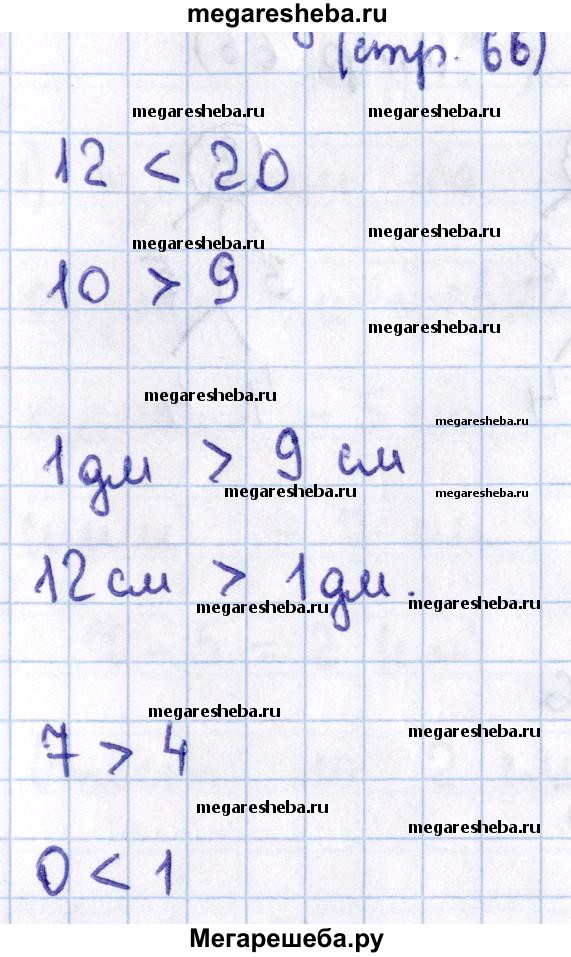 megaresheba.ru
(стр. 66)
megaresheba.ru megaresheba.ru
12 < 20
megaresheba.ru megaresheba.ru
10 > 9
megaresheba.ru
megaresheba.ru
megaresheba.ru
1 дм > 9 см
megaresheba.ru megaresheba.ru
12 см > 1 дм.
megaresheba.ru megaresheba.ru
megaresheba.ru
megaresheba.ru
7 > 4
megaresheba.ru
megaresheba.ru
0 < 1
Мегарешеба.ру